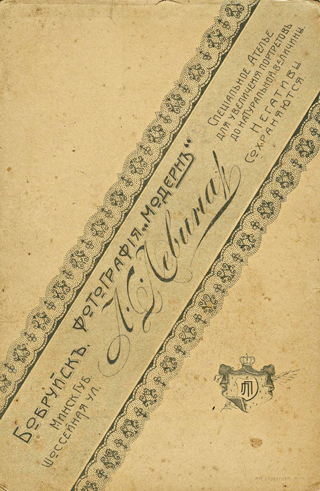 Спеціальное Ателье
для увеличенія портретовъ
до натуральной величины.
Негативы
сохраняются
Фотографія „Модернъ“
Левина
Бобруйскъ.
Минск. губ.
Шоссейная ул.